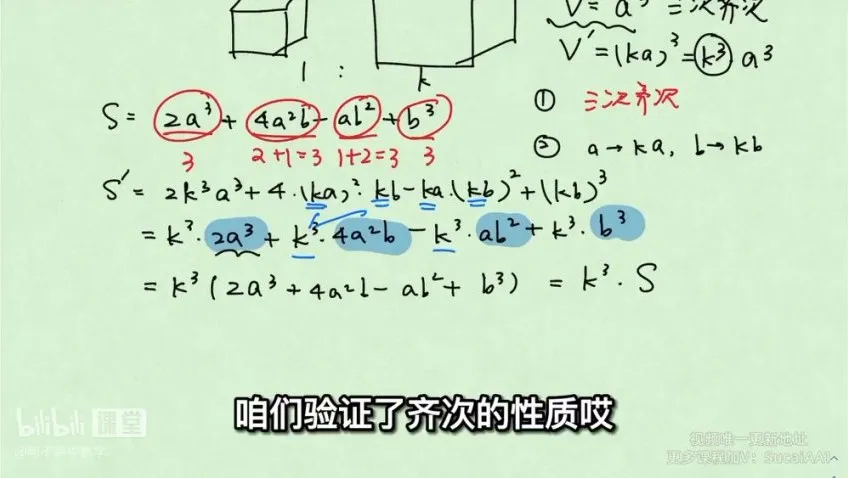 V = a³ 三次齐次
V' = (ka)³ = k³·a³
1 : k
S = 2a³ + 4a²b - ab² + b³
① 三次齐次
3 2+1=3 1+2=3 3
② a→ka, b→kb
S' = 2k³a³ + 4·(ka)²·kb - ka·(kb)² + (kb)³
= k³·2a³ + k³·4a²b - k³·ab² + k³·b³
= k³(2a³ + 4a²b - ab² + b³) = k³·S
咱们验证了齐次的性质哎
bilibili 课堂
视频唯一更新地址
更多课程加V: SucaiAAI